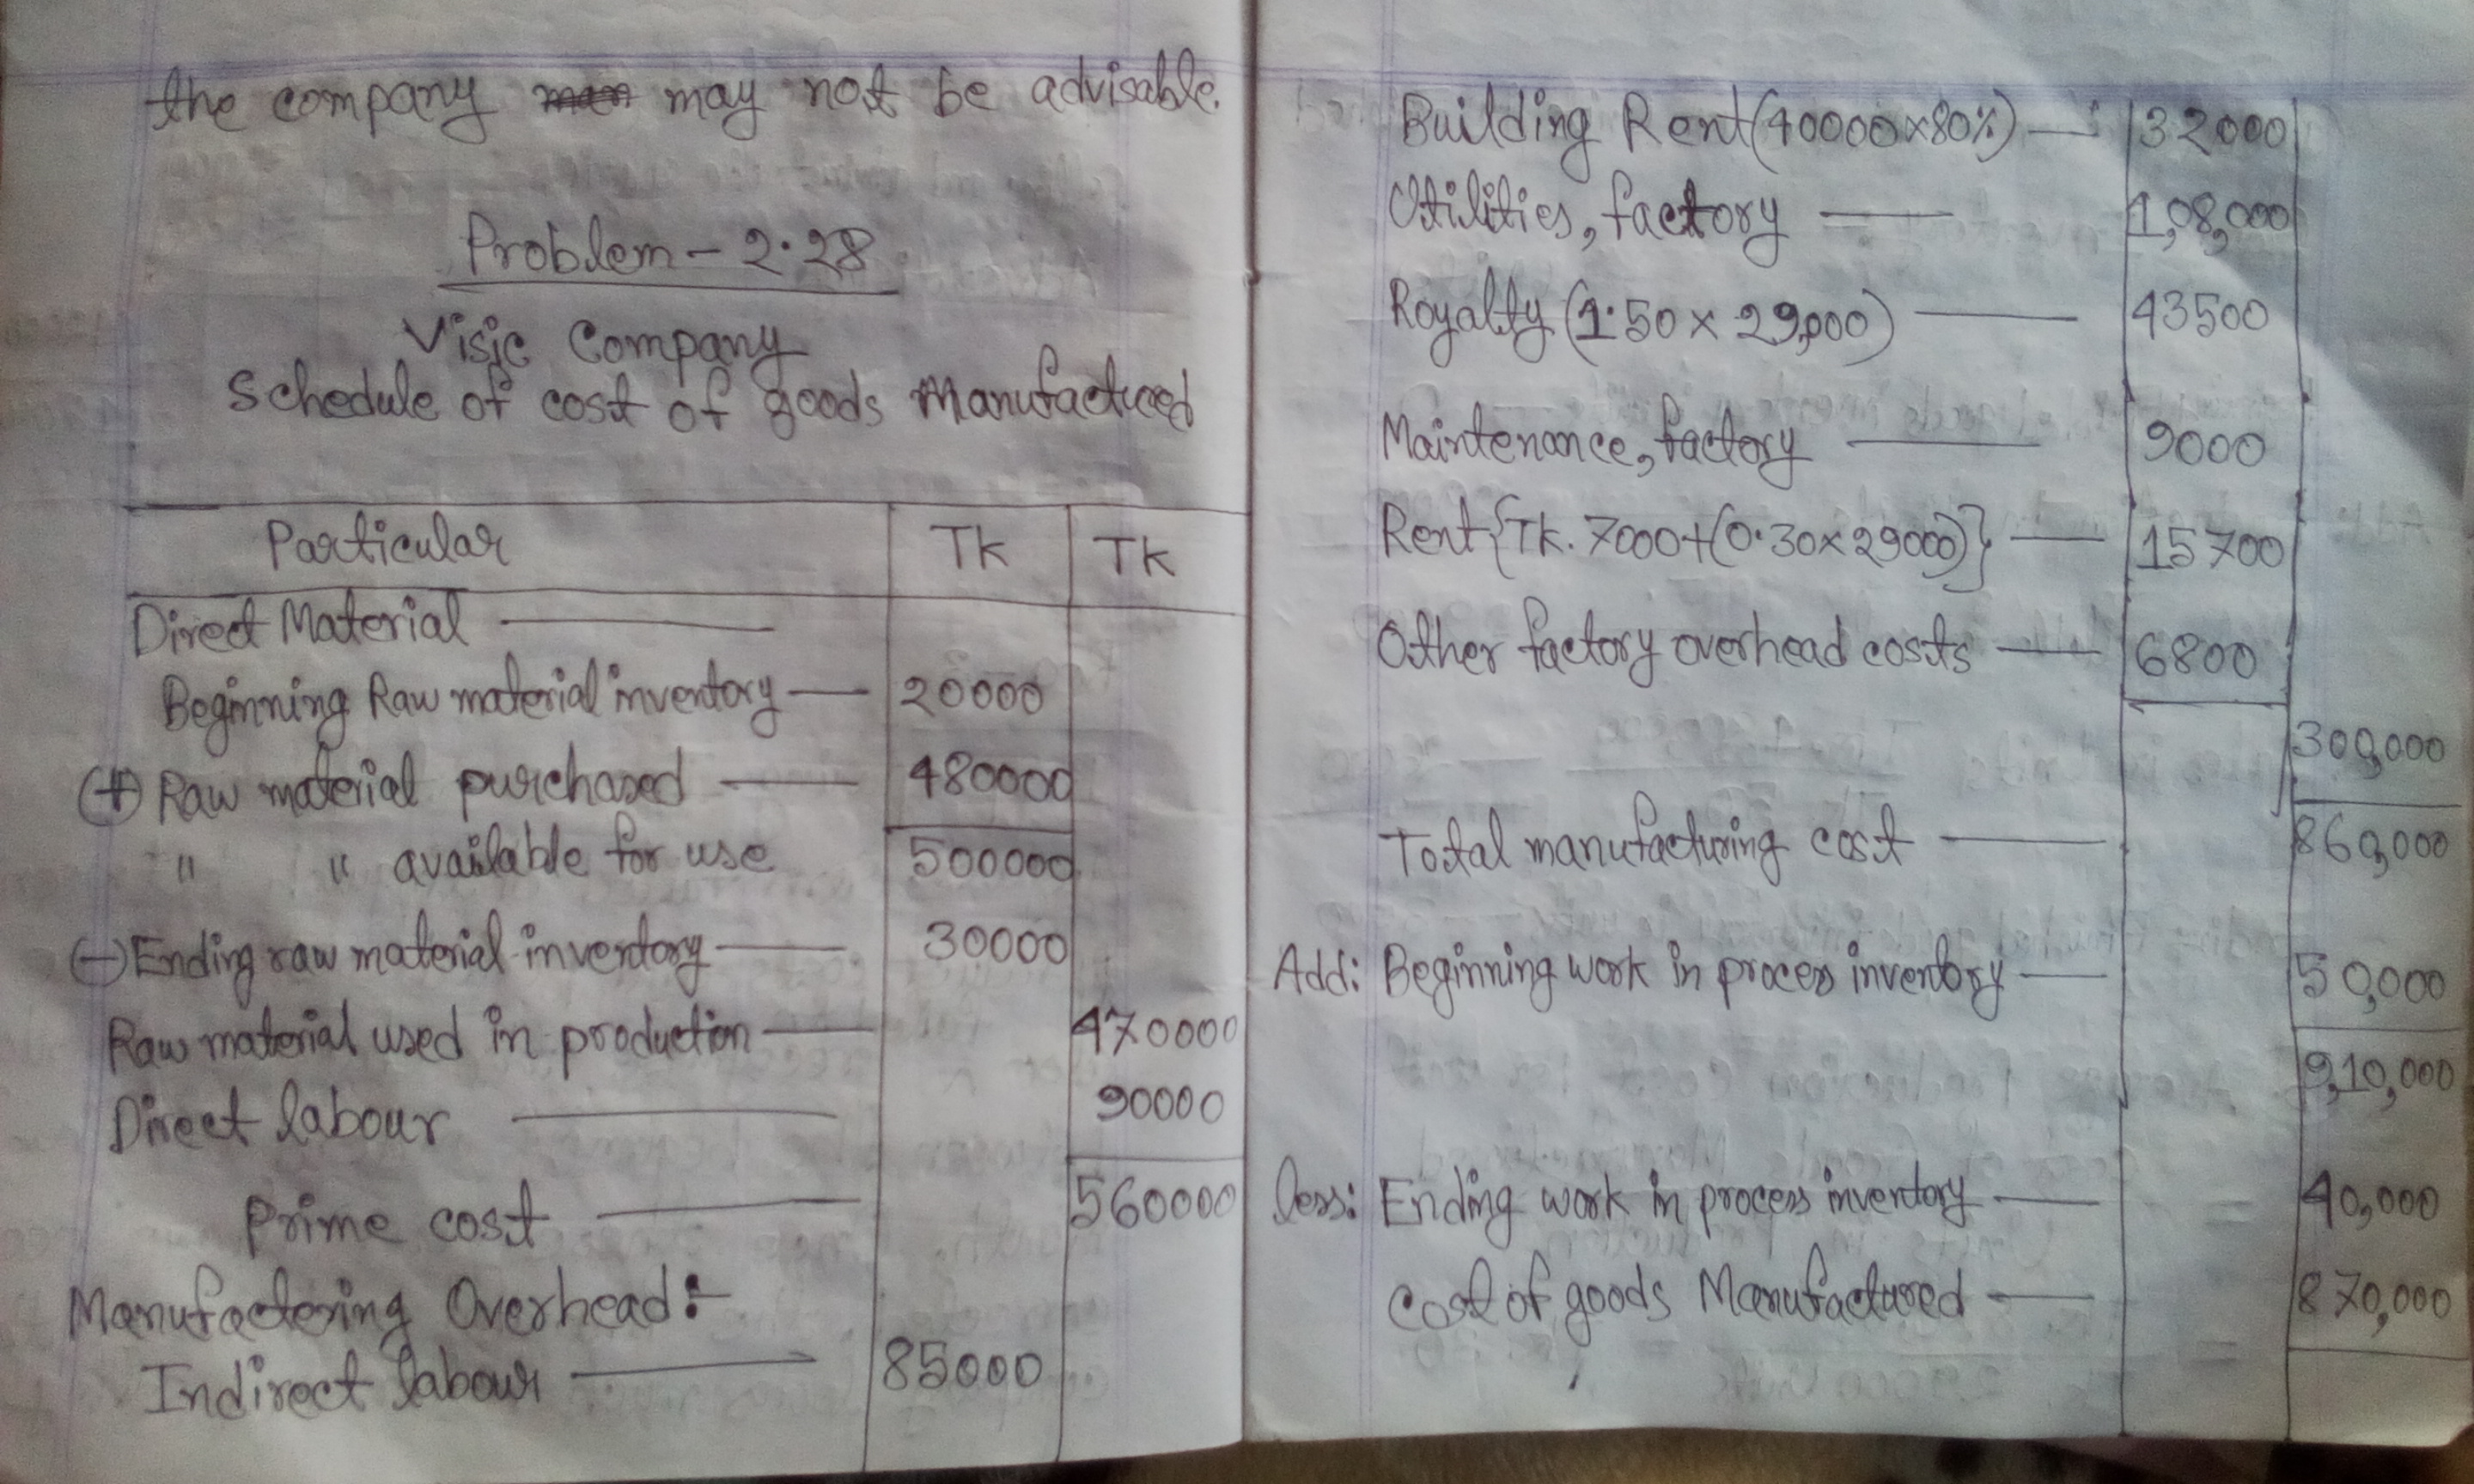 the company may not be advisable.
Problem - 2.28
Visic Company
Schedule of cost of goods Manufactured
Particular Tk Tk
Direct Material
Beginning Raw material inventory — 20000
(+) Raw material purchased — 480000
" " available for use 500000
(-) Ending raw material inventory — 30000
Raw material used in production — 470000
Direct labour — 90000
Prime cost — 560000
Manufactering Overhead:-
Indirect labour — 85000
Building Rent (40000×80%) — 32000
Utilities, factory — 1,08,000
Royalty (1.50 × 29,000) — 43500
Maintenance, factory — 9000
Rent {Tk. 7000+(0.30×29000)} — 15700
Other factory overhead costs — 6800
300,000
Total manufacturing cost — 860,000
Add: Beginning work in process inventory — 50,000
9,10,000
less: Ending work in process inventory — 40,000
Cost of goods Manufactured — 870,000